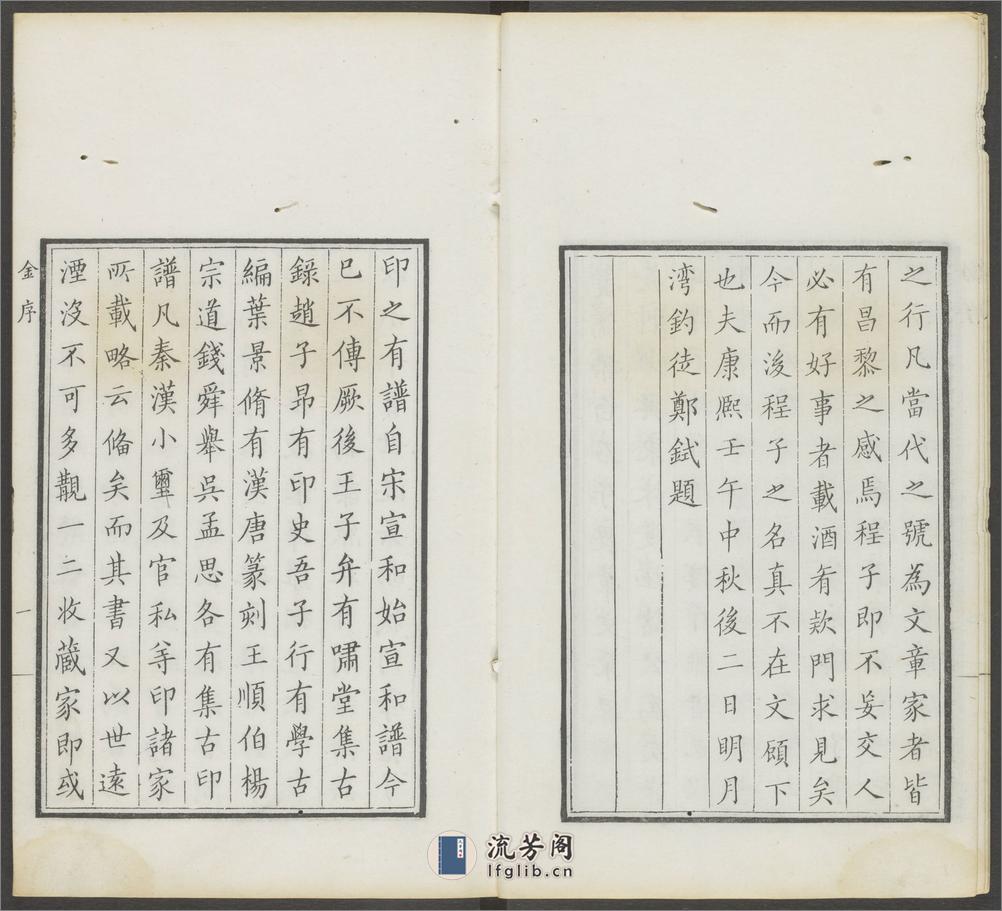 之行凡當代之號為文章家者皆
有昌黎之感焉程子即不妄交人
必有好事者載酒肴欵門求見矣
今而後程子之名真不在文頠下
也夫康熈壬午中秋後二日明月
湾釣徒鄭鉽題
印之有譜自宋宣和始宣和譜今
已不傳厥後王子弁有嘯堂集古
錄趙子昂有印史吾子行有學古
編葉景脩有漢唐篆刻王順伯楊
宗道錢舜舉吳孟思各有集古印
譜凡秦漢小璽及官私等印諸家
所載略云俻矣而其書又以世遠
湮沒不可多觀一二收蔵家即或
金序
一
流芳阁
lfglib.cn